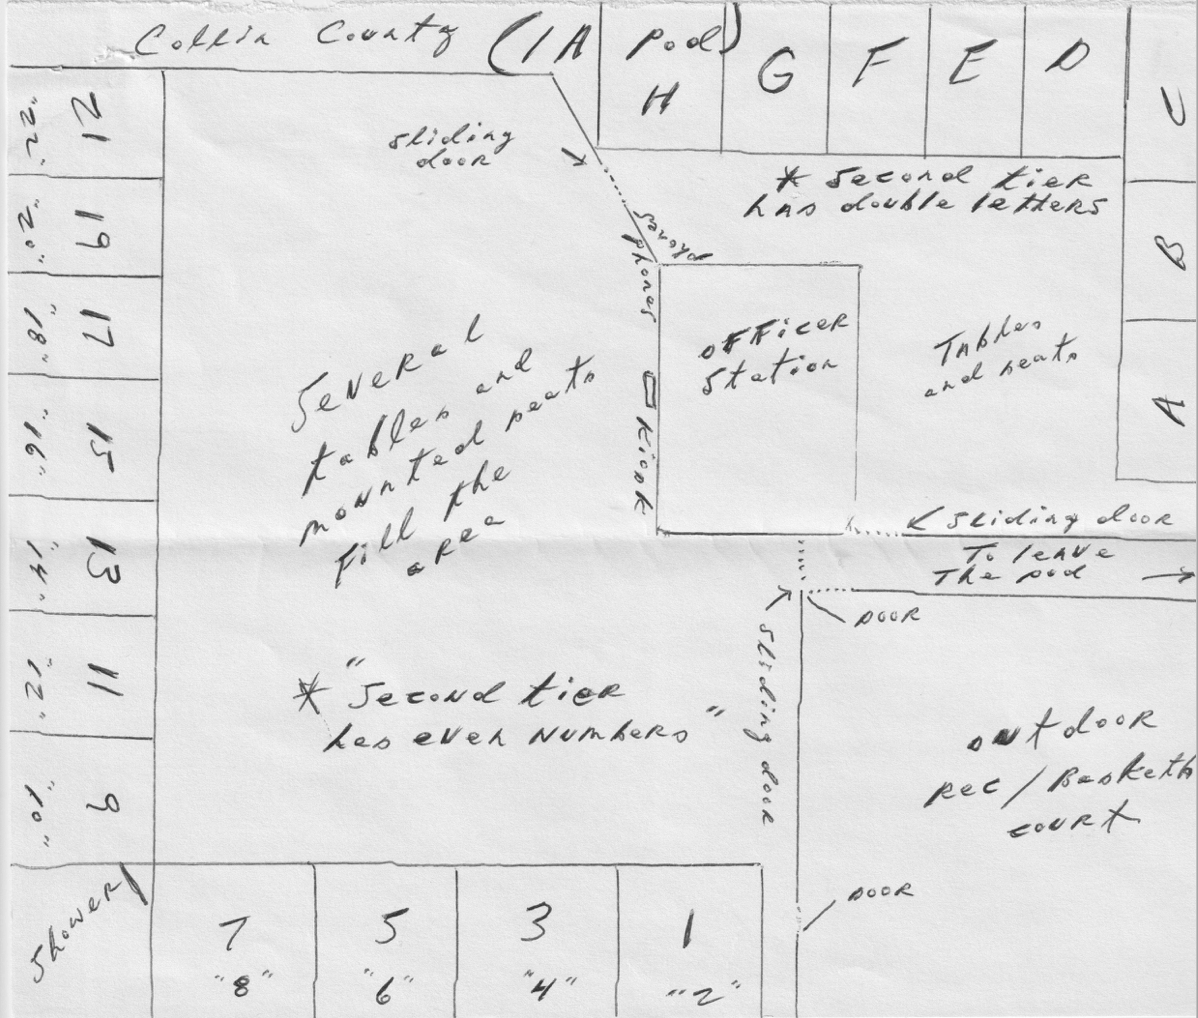 Collin County (1A Pod)
H
G
F
E
D
C
B
A
sliding
door
* Second tier
has double letters
phones
phones
Kiosk
Officer
Station
Tables
and seats
Several
tables and
mounted seats
fill the
area
sliding door
To leave
The pod
DOOR
sliding door
* "Second tier
has even numbers"
outdoor
Rec / Basketb
court
DOOR
21
"22"
19
"20"
17
"18"
15
"16"
13
"14"
11
"12"
9
"10"
Shower
7
"8"
5
"6"
3
"4"
1
"2"